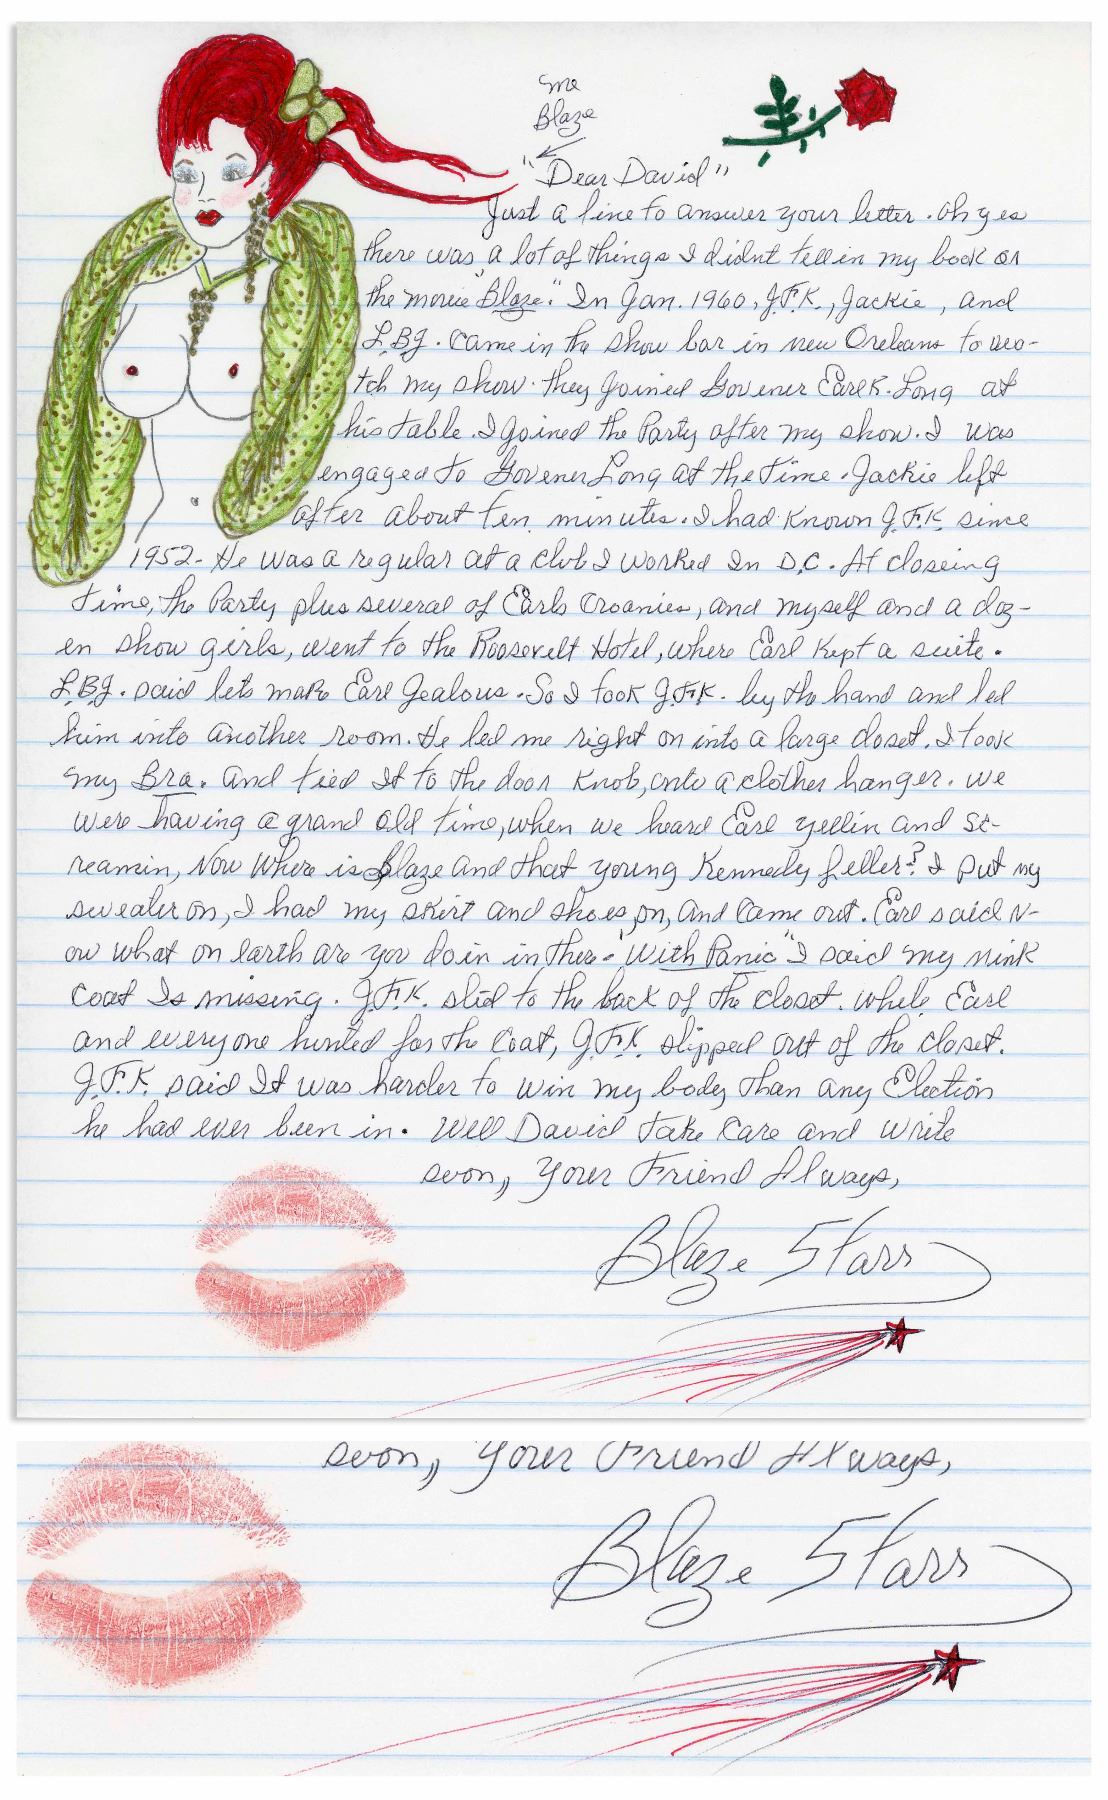 me
Blaze
"Dear David"
Just a line to answer your letter. Oh yes
there was a lot of things I didnt tell in my book or
the movie "Blaze." In Jan. 1960, J.F.K., Jackie, and
L.B.J. came in the show bar in new Orleans to wa-
tch my show. they joined Govener Earl K. Long at
his table. I joined the Party after my show. I was
engaged to Govener Long at the time. Jackie left
after about ten minutes. I had known J.F.K. since
1952- He was a regular at a club I worked In D.C. At closeing
time, the Party plus several of Earls Croanies, and myself and a doz-
en show girls, went to the Roosevelt Hotel, where Earl Kept a suite.
L.B.J. said lets make Earl Jealous. So I took J.F.K. by the hand and led
him into another room. He led me right on into a large closet. I took
my Bra. and tied It to the door Knob, onto a clothes hanger. we
were having a grand old time, when we heard Earl yellin and sc-
reamin, Now Where is Blaze and that young Kennedy feller? I put my
sweater on, I had my skirt and shoes on, and came out. Earl said N-
ow what on earth are you doin in there. "With Panic" I said my mink
coat Is missing. J.F.K. slid to the back of the closet. while Earl
and everyone hunted for the coat, J.F.K. slipped out of the closet.
J.F.K. said It was harder to win my body than any Election
he had ever been in. Well David take care and write
soon,, Your Friend Always,
Blaze Starr
soon,, Your Friend Always,
Blaze Starr